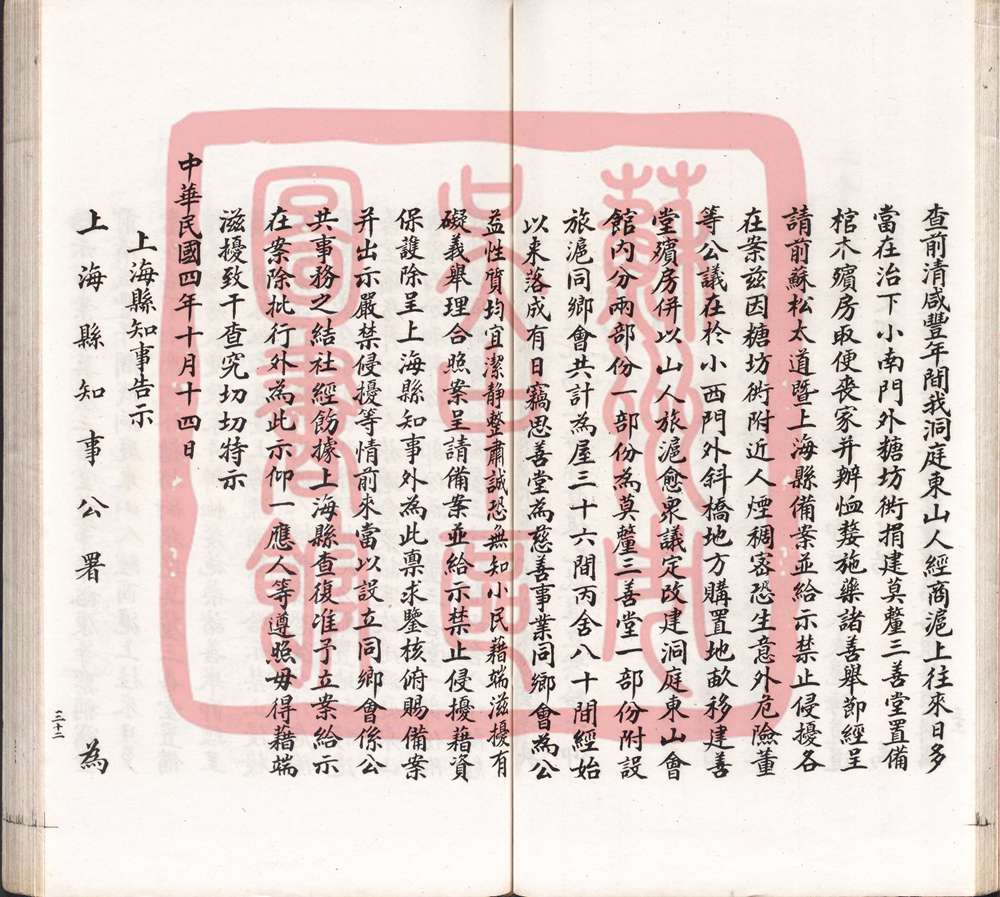 查前清咸豐年間我洞庭東山人經商滬上往來日多
當在治下小南門外糖坊衖捐建莫釐三善堂置備
棺木殯房取便喪家并辦恤嫠施藥諸善舉節經呈
請前蘇松太道暨上海縣備案並給示禁止侵擾各
在案茲因糖坊衖附近人煙稠密恐生意外危險董
等公議在於小西門外斜橋地方購置地畝移建善
堂殯房併以山人旅滬愈衆議定改建洞庭東山會
館內分兩部份一部份為莫釐三善堂一部份附設
旅滬同鄉會共計為屋三十六間丙舍八十間經始
以來落成有日竊思善堂為慈善事業同鄉會為公
益性質均宜潔靜整肅誠恐無知小民藉端滋擾有
礙義舉理合照案呈請備案並給示禁止侵擾藉資
保護除呈上海縣知事外為此禀求鑒核俯賜備案
并出示嚴禁侵擾等情前來當以設立同鄉會係公
共事務之結社經飭據上海縣查復准予立案給示
在案除批行外為此示仰一應人等遵照毋得藉端
滋擾致干查究切切特示
中華民國四年十月十四日
上海縣知事告示
上海縣知事公署 為
三十二
蘇州市
吳中區
圖書館